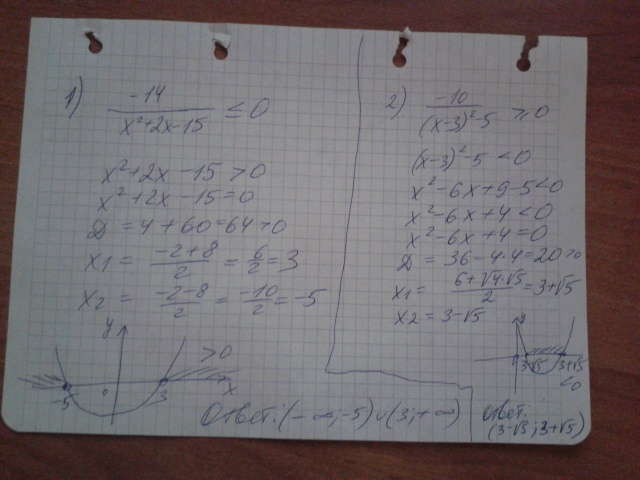 1) -14/(x²+2x-15) ≤ 0
x²+2x-15>0
x²+2x-15=0
D=4+60=64>0
x1= (-2+8)/2 = 6/2 = 3
x2= (-2-8)/2 = -10/2 = -5
y
>0
-5 0 3 x
Ответ: (-∞;-5)∪(3;+∞)
2) -10/((x-3)²-5) ≥ 0
(x-3)²-5<0
x²-6x+9-5<0
x²-6x+4<0
x²-6x+4=0
D=36-4·4=20>0
x1= (6+√4·√5)/2 = 3+√5
x2=3-√5
3-√5 3+√5
<0
Ответ:
(3-√5; 3+√5)